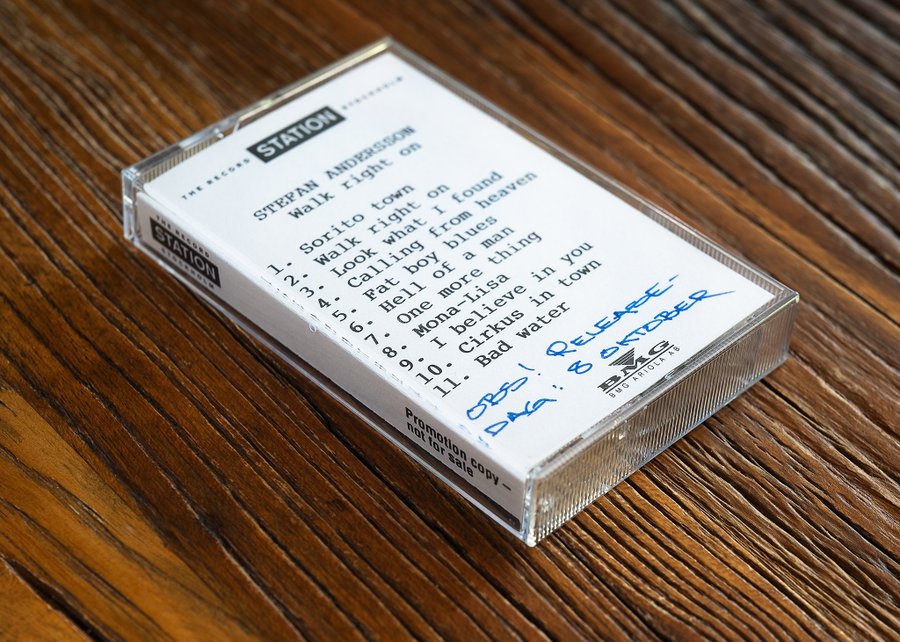 THE RECORD STATION STOCKHOLM
STEFAN ANDERSSON
Walk right on
1. Sorito town
2. Walk right on
3. Look what I found
4. Calling from heaven
5. Fat boy blues
6. Hell of a man
7. One more thing
8. Mona-Lisa
9. I believe in you
10. Cirkus in town
11. Bad water
OBS! RELEASE-
DAG: 8 OKTOBER
BMG
BMG ARIOLA AB
THE RECORD
STATION
STOCKHOLM
Promotion copy –
not for sale